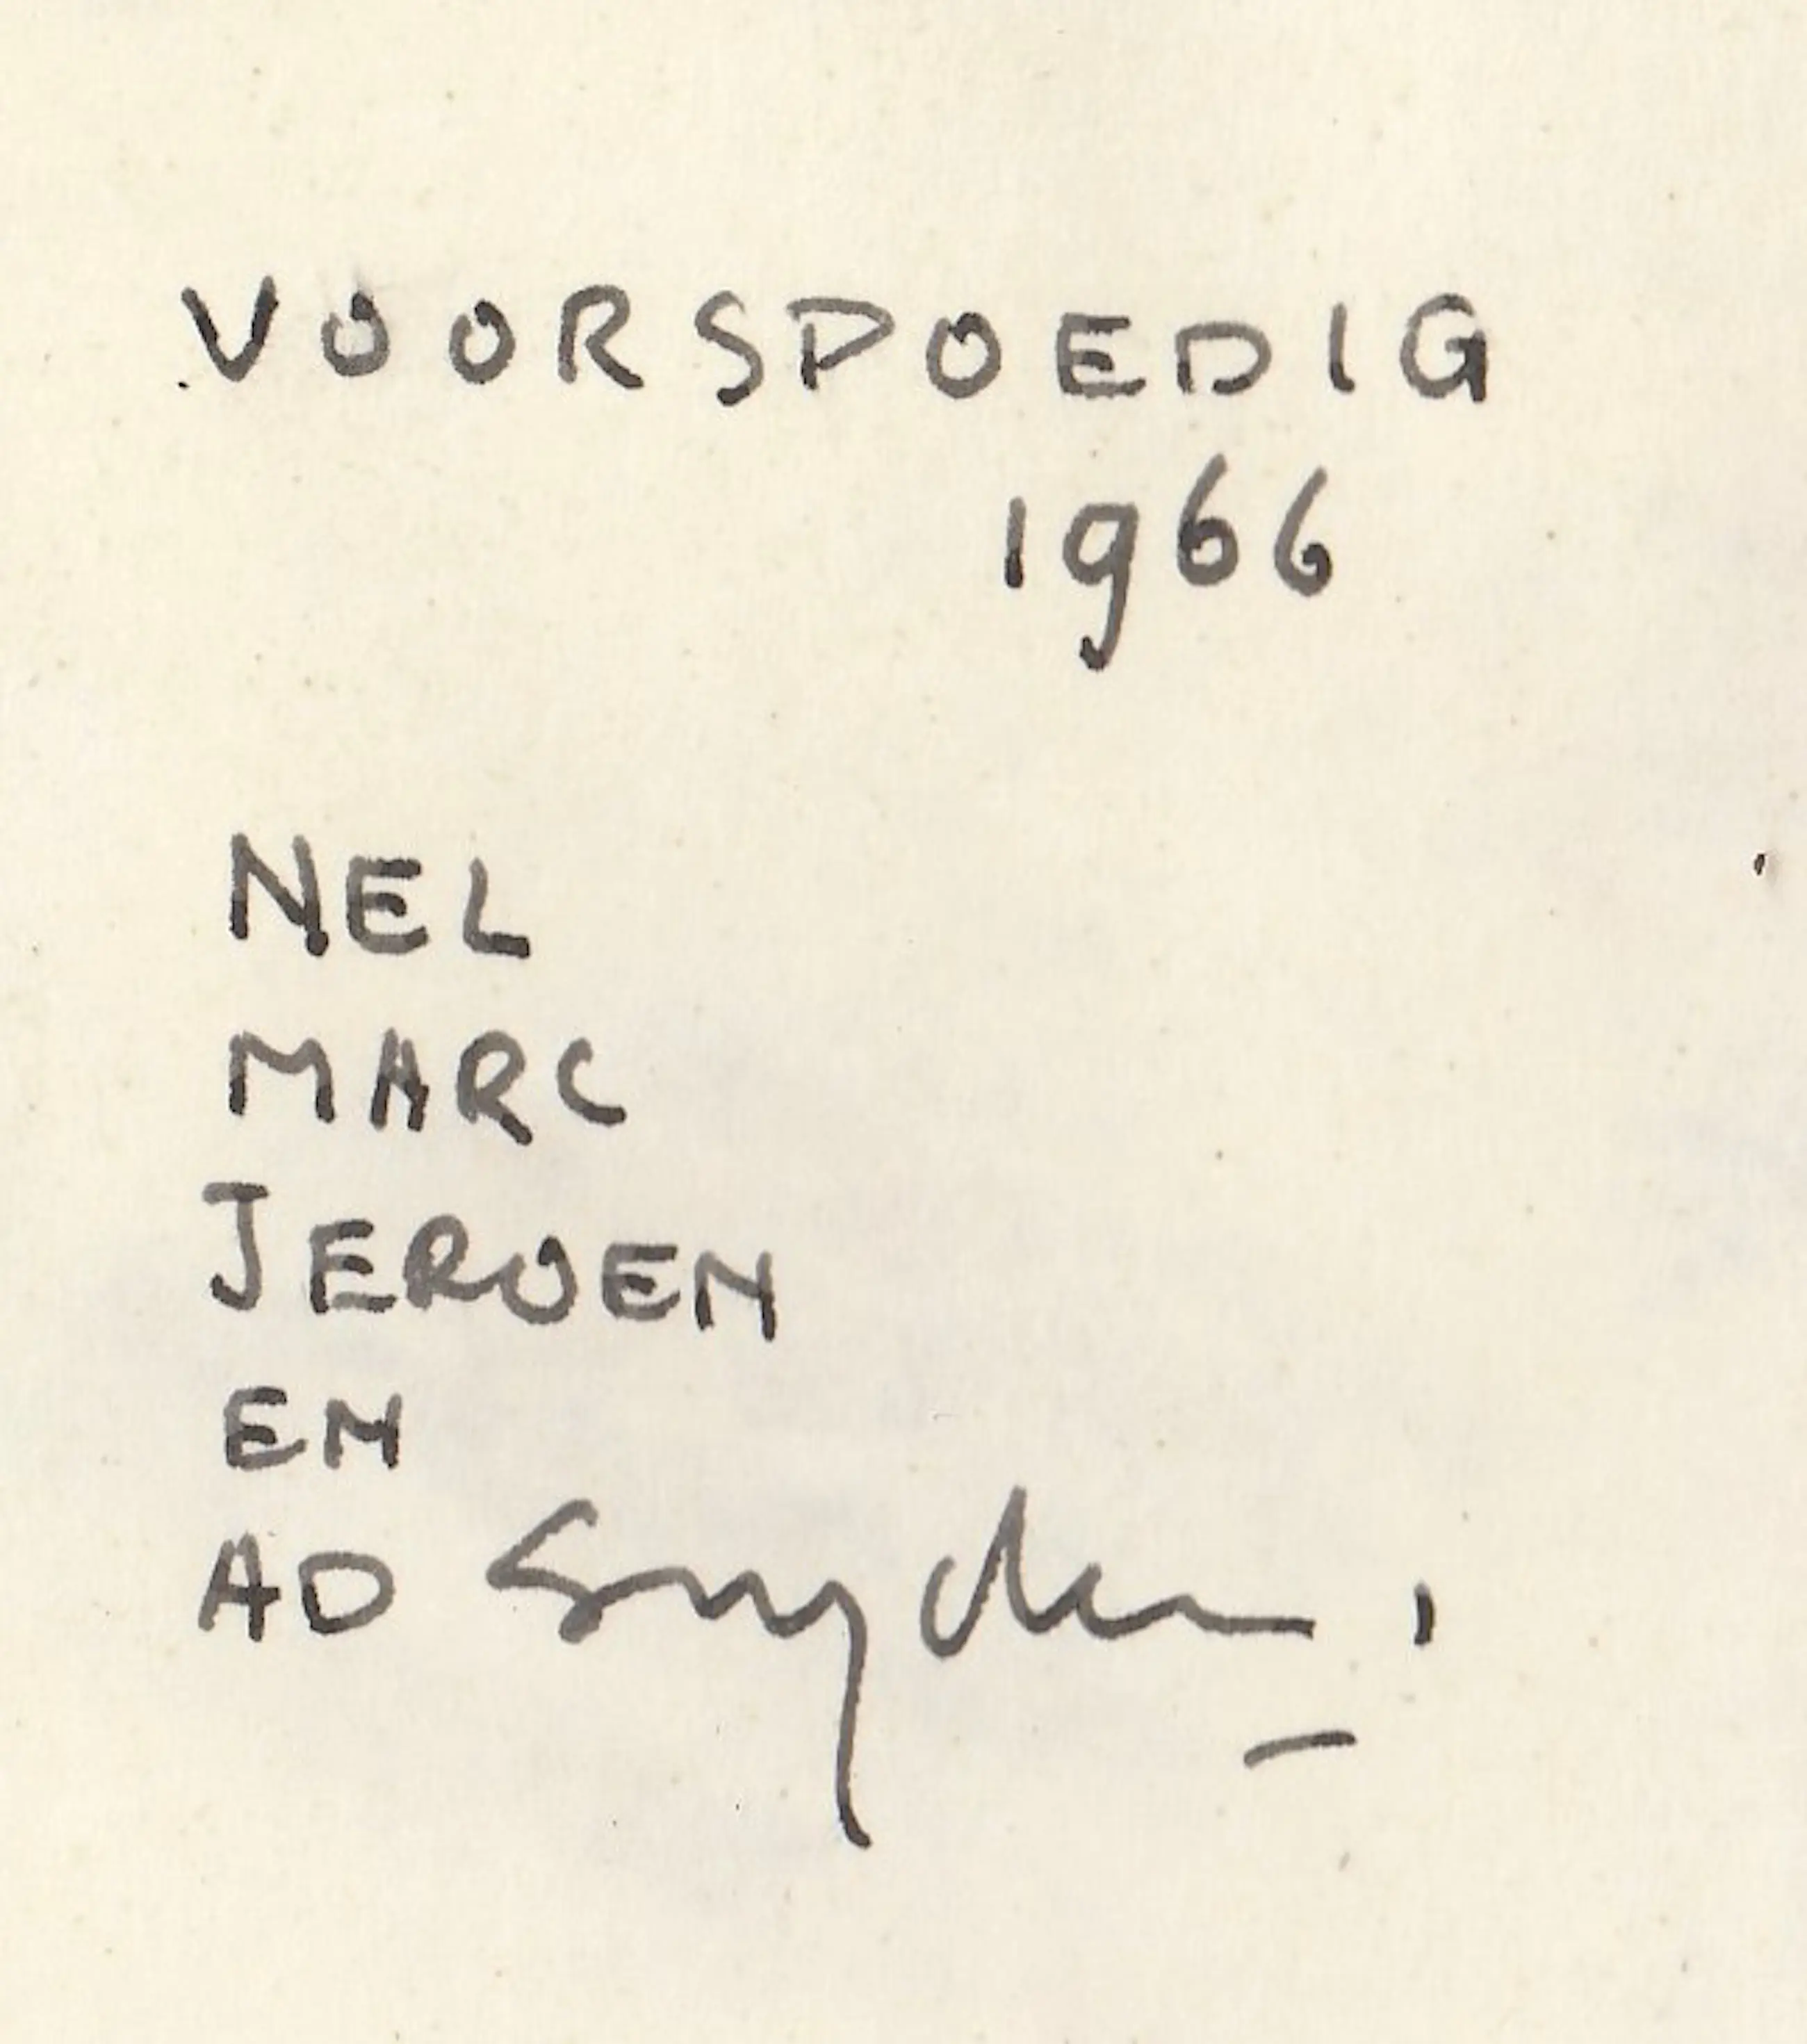 VOORSPOEDIG
1966
NEL
MARC
JEROEN
EN
AD Snyders